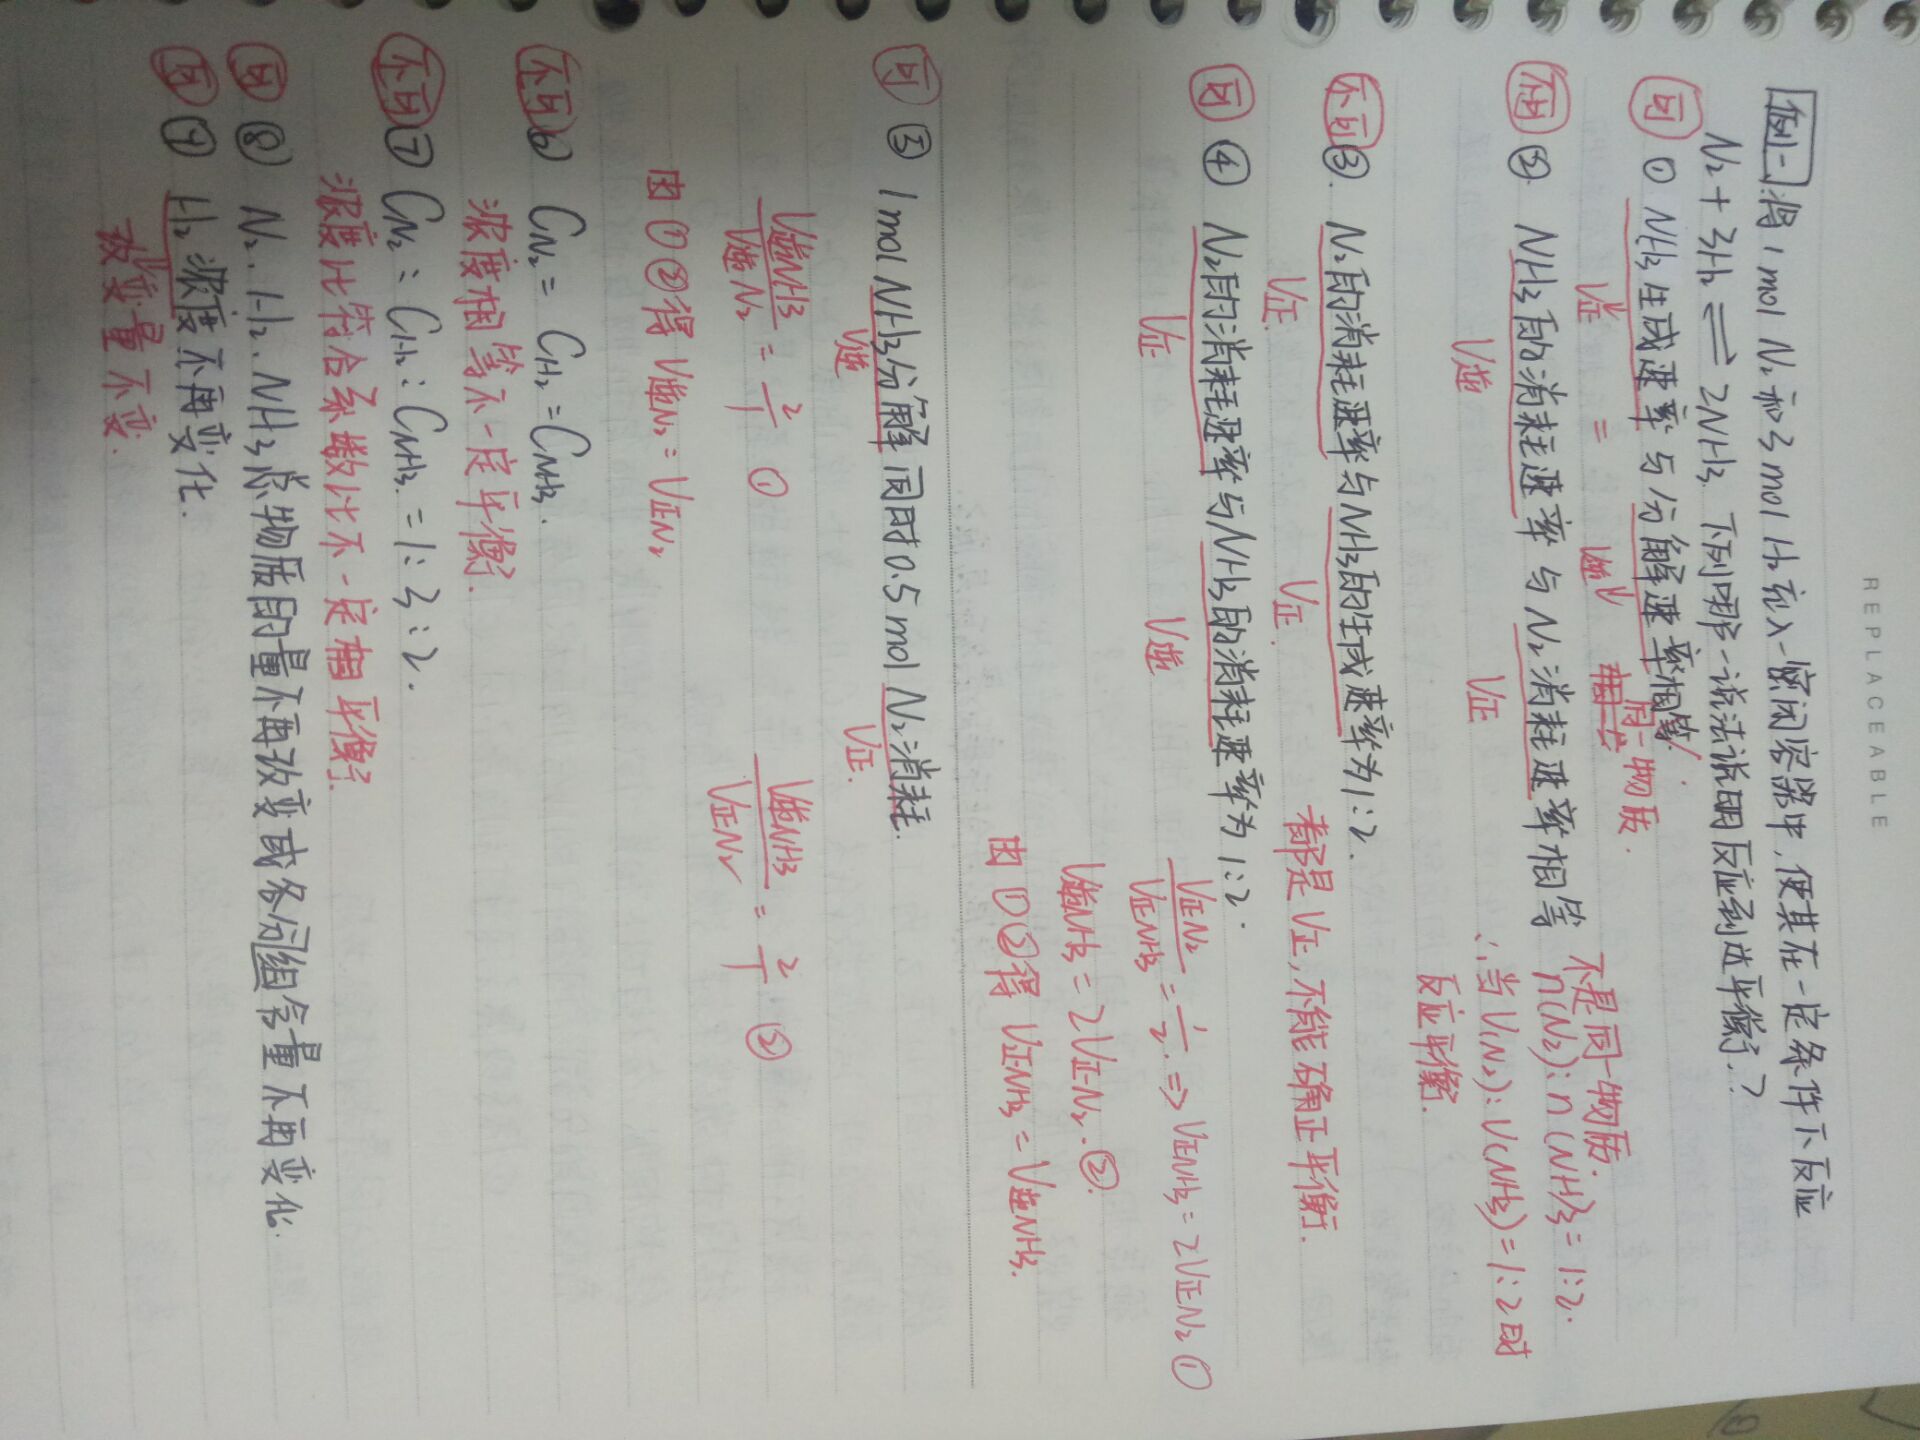 REPLACEABLE
例一.将1mol N₂和3mol H₂充入一密闭容器中,使其在一定条件下反应
N₂+3H₂⇌2NH₃.下列哪一说法说明反应到达平衡?
可 ① NH₃生成速率与分解速率相等
V正 = V逆 同一物质.
不可 ② NH₃的消耗速率与N₂消耗速率相等 不是同一物质.
n(N₂):n(NH₃=1:2.
V逆 V正 ∴当V(N₂):V(NH₃)=1:2时
反应平衡.
不可 ③. N₂的消耗速率与NH₃的生成速率为1:2.
V正. V正. 都是V正,不能确正平衡.
可 ④ N₂的消耗速率与NH₃的消耗速率为1:2.
V正 V逆 V正N₂/V正NH₃=1/2.⇒V正NH₃=2V正N₂ ①
V逆NH₃=2V正N₂.②.
由①②得 V正NH₃=V逆NH₃.
可 ③ 1mol NH₃分解同时0.5mol N₂消耗.
V逆 V正.
V逆NH₃/V逆N₂=2/1 ① V逆NH₃/V正N₂=2/1 ②
由①②得 V逆N₂=V正N₂
不可 ⑥ CN₂=CH₂=CNH₃.
浓度相等不一定平衡.
不可 ⑦ CN₂:CH₂:CNH₃.=1:3:2.
浓度比符合系数比不一定平衡.
可 ⑧ N₂、H₂、NH₃总物质的量不再改变或各组分含量不再变化.
可 ⑨ H₂浓度不再变化.
改变量不变.